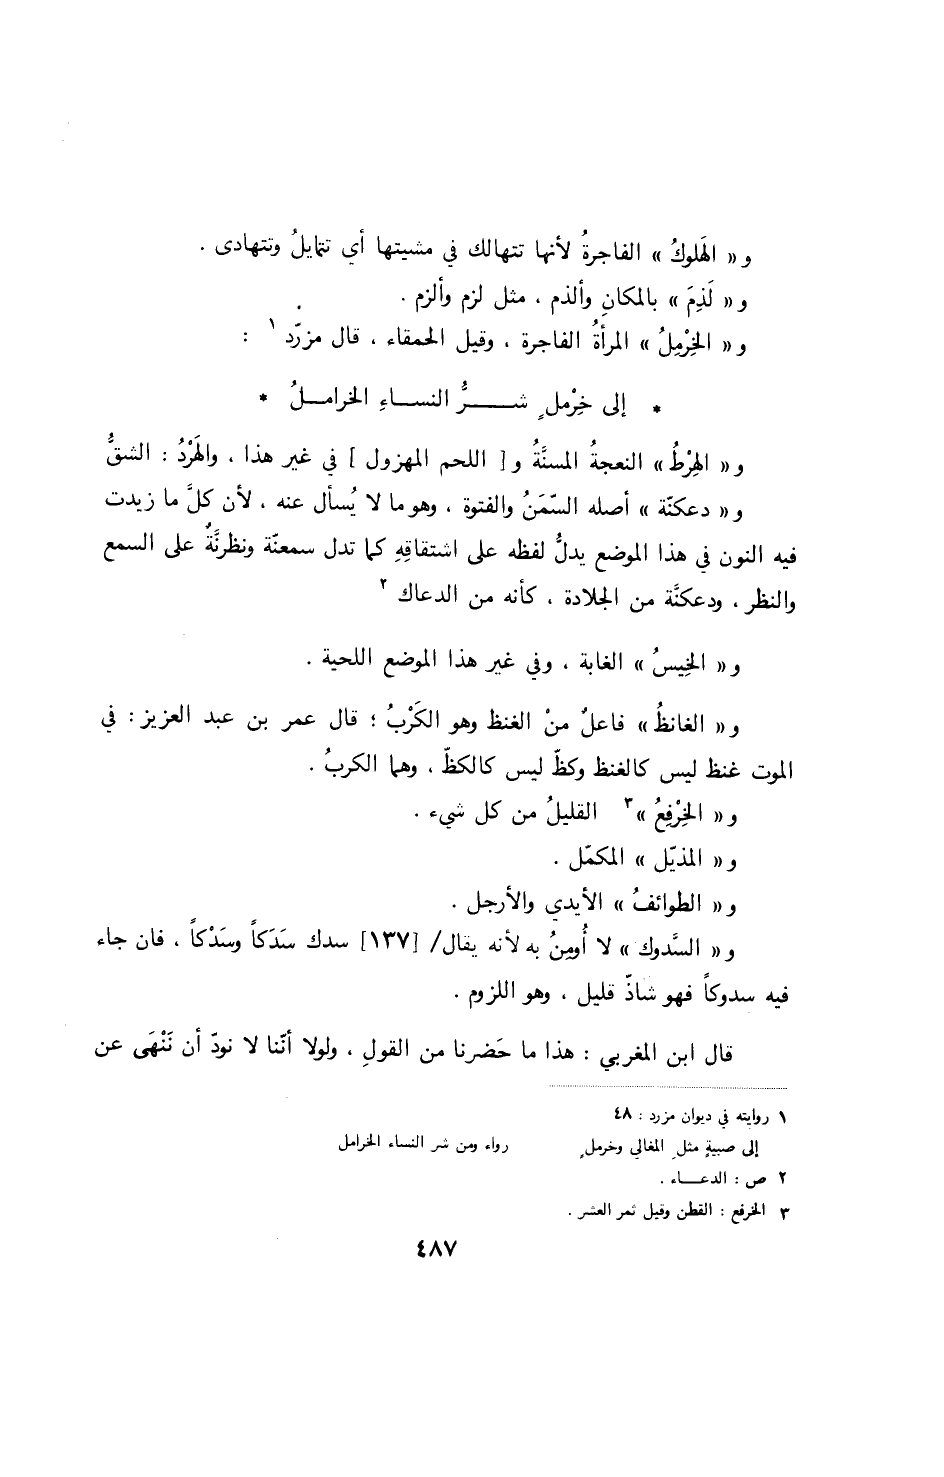 و « الهَلوكُ » الفاجرةُ لأنها تتهالك في مشيتها أي تتمايلُ وتتهادى .
و « لَذِمَ » بالمكانِ وألذم ، مثل لزم وألزم .
و « الخِرْمِلُ » المرأةُ الفاجرة ، وقيل الحمقاء ، قال مزرّد ١ :
* إلى خِرْملٍ شـــرُّ النســاءِ الخرامــلُ *
و « الهِرْطُ » النعجةُ المسنَّةُ و [ اللحم المهزول ] في غير هذا ، والهَرْدُ : الشقُّ
و « دعكنّة » أصله السّمَنُ والفتوة ، وهو ما لا يُسأل عنه ، لأن كلَّ ما زيدت
فيه النون في هذا الموضع يدلُّ لفظه على اشتقاقِهِ كما تدل سمعنّة ونظرنَّةٌ على السمع
والنظر ، ودعكنَّة من الجلادة ، كأنه من الدعاك ٢
و « الخِيسُ » الغابة ، وفي غير هذا الموضع اللحية .
و « الغانظُ » فاعلٌ منْ الغنظ وهو الكَرْبُ ؛ قال عمر بن عبد العزيز : في
الموت غنظ ليس كالغنظ وكظّ ليس كالكظّ ، وهما الكربُ .
و « الخِرْفِعُ » ٣ القليلُ من كل شيء .
و « المذيّل » المكمّل .
و « الطوائفُ » الأيدي والأرجل .
و « السَّدوك » لا أُومِنُ به لأنه يقال/ [١٣٧] سدك سَدَكاً وسَدْكاً ، فان جاء
فيه سدوكاً فهو شاذّ قليل ، وهو اللزوم .
قال ابن المغربي : هذا ما حَضرنا من القولِ ، ولولا أنّنا لا نودّ أن نَنْهَى عن
١ روايته في ديوان مزرد : ٤٨
إلى صبيةٍ مثلِ المغالي وخرملٍ رواء ومن شر النساء الخرامل
٢ ص : الدعــاء .
٣ الخرفع : القطن وقيل ثمر العشر .
٤٨٧